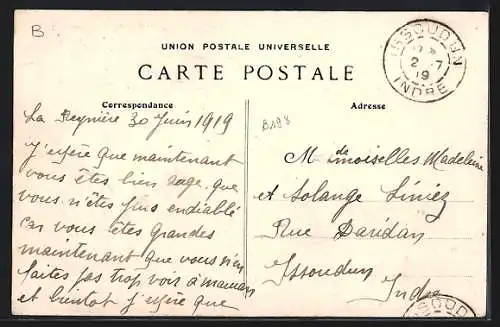 B
UNION POSTALE UNIVERSELLE
CARTE POSTALE
Correspondance
La Reynière 30 Juin 1919
J'espère que maintenant
vous êtes bien sage, que
vous n'êtes plus endiablé
car vous êtes grandes
maintenant que vous n'en
faites pas trop voir à maman
et bientôt j'espère que
B198
Adresse
Mdemoiselles Madeleine
et Solange Liniez
Rue Daridan
Issoudun
Indre
ISSOUDUN
2 -7
19
INDRE